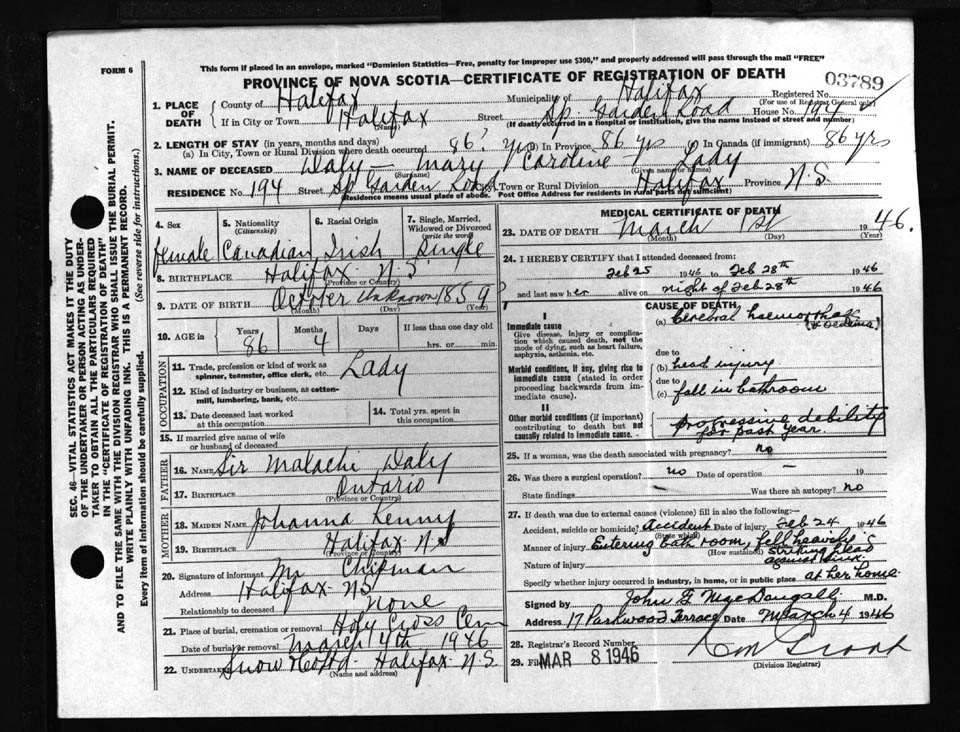 FORM 6
This form if placed in an envelope, marked "Dominion Statistics—Free, penalty for improper use $300," and properly addressed will pass through the mail "FREE"
PROVINCE OF NOVA SCOTIA—CERTIFICATE OF REGISTRATION OF DEATH
03789
SEC. 46—VITAL STATISTICS ACT MAKES IT THE DUTY
OF THE UNDERTAKER OR PERSON ACTING AS UNDER-
TAKER TO OBTAIN ALL THE PARTICULARS REQUIRED
IN THE "CERTIFICATE OF REGISTRATION OF DEATH"
AND TO FILE THE SAME WITH THE DIVISION REGISTRAR WHO SHALL ISSUE THE BURIAL PERMIT.
WRITE PLAINLY WITH UNFADING INK. THIS IS A PERMANENT RECORD.
Every item of Information should be carefully supplied. (See reverse side for instructions.)
1. PLACE OF DEATH
County of Halifax Municipality of Halifax Registered No.
(For use of Registrar General only)
If in City or Town Halifax Street Sp Garden Road House No. 194
(Name) (If death occurred in a hospital or institution, give the name instead of street and number)
2. LENGTH OF STAY (in years, months and days)
(a) In City, Town or Rural Division where death occurred 86? yrs (b) In Province 86 yrs (c) In Canada (if immigrant) 86 yrs
3. NAME OF DECEASED Daly — Mary Caroline — Lady
(Surname) (Given name or names)
RESIDENCE No. 194 Street Sp Garden Road Town or Rural Division Halifax Province N.S.
(Residence means usual place of abode. Post Office Address for residents in rural parts not sufficient)
4. Sex 5. Nationality (Citizenship) 6. Racial Origin 7. Single, Married, Widowed or Divorced (write the word)
Female Canadian Irish Single
8. BIRTHPLACE Halifax N.S
(Province or Country)
9. DATE OF BIRTH October Unknown 1859
(Month) (Day) (Year)
10. AGE in Years Months Days If less than one day old
86 4 hrs. or min.
OCCUPATION
11. Trade, profession or kind of work as spinner, teamster, office clerk, etc. Lady
12. Kind of industry or business, as cotton-mill, lumbering, bank, etc.
13. Date deceased last worked at this occupation
14. Total yrs. spent in this occupation
15. If married give name of wife or husband of deceased
FATHER
16. NAME Sir Malachi Daly
17. BIRTHPLACE Ontario
(Province or Country)
MOTHER
18. MAIDEN NAME Johanna Kenny
19. BIRTHPLACE Halifax N.S
(Province or Country)
20. Signature of informant Mr Chipman
Address Halifax N.S
Relationship to deceased None
21. Place of burial, cremation or removal Holy Cross Cem
Date of burial or removal March 4th 1946
22. Undertaker Snow &Co Ltd. Halifax N.S
(Name and address)
MEDICAL CERTIFICATE OF DEATH
23. DATE OF DEATH March 1st 1946.
(Month) (Day) (Year)
24. I HEREBY CERTIFY that I attended deceased from:
Feb 25 1946 to Feb 28th 1946
and last saw her alive on night of Feb 28th 1946
CAUSE OF DEATH
I
Immediate cause
Give disease, injury or complication which caused death, not the mode of dying, such as heart failure, asphyxia, asthenia, etc.
(a) Cerebral haemorrhage
(& oedema)
due to
Morbid conditions, if any, giving rise to immediate cause (stated in order proceeding backwards from immediate cause).
(b) head injury
due to
(c) fall in bathroom
II
Other morbid conditions (if important) contributing to death but not causally related to immediate cause.
progressive debility
for past year.
25. If a woman, was the death associated with pregnancy? no
26. Was there a surgical operation? no Date of operation — 19
State findings — Was there an autopsy? no
27. If death was due to external causes (violence) fill in also the following:
Accident, suicide or homicide? Accident Date of injury Feb 24 1946
(State which)
Manner of injury Entering bath room, fell heavily &
(How sustained) striking head
Nature of injury against sink.
Specify whether injury occurred in industry, in home, or in public place at her home.
Signed by John G MacDougall M.D.
Address 17 Parkwood Terrace Date March 4 1946
28. Registrar's Record Number
29. Filed MAR 8 1946
(Division Registrar)